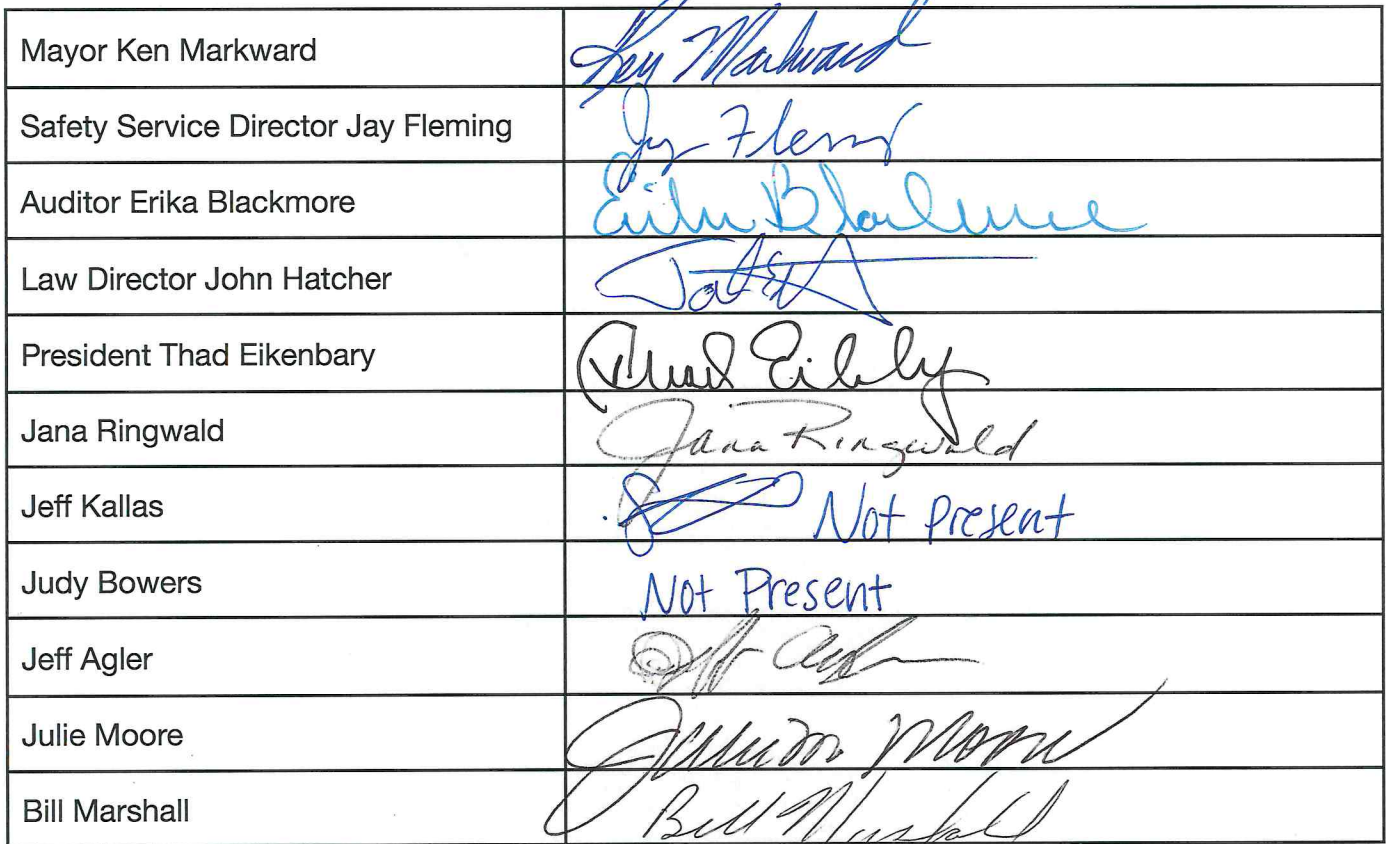 Mayor Ken Markward Ken Markward
Safety Service Director Jay Fleming Jay Flemi
Auditor Erika Blackmore
Law Director John Hatcher
President Thad Eikenbary Thad
Jana Ringwald Jana Ringwald
Jeff Kallas Not Present
Judy Bowers Not Present
Jeff Agler Jeff
Julie Moore Moore
Bill Marshall Bill Marshall